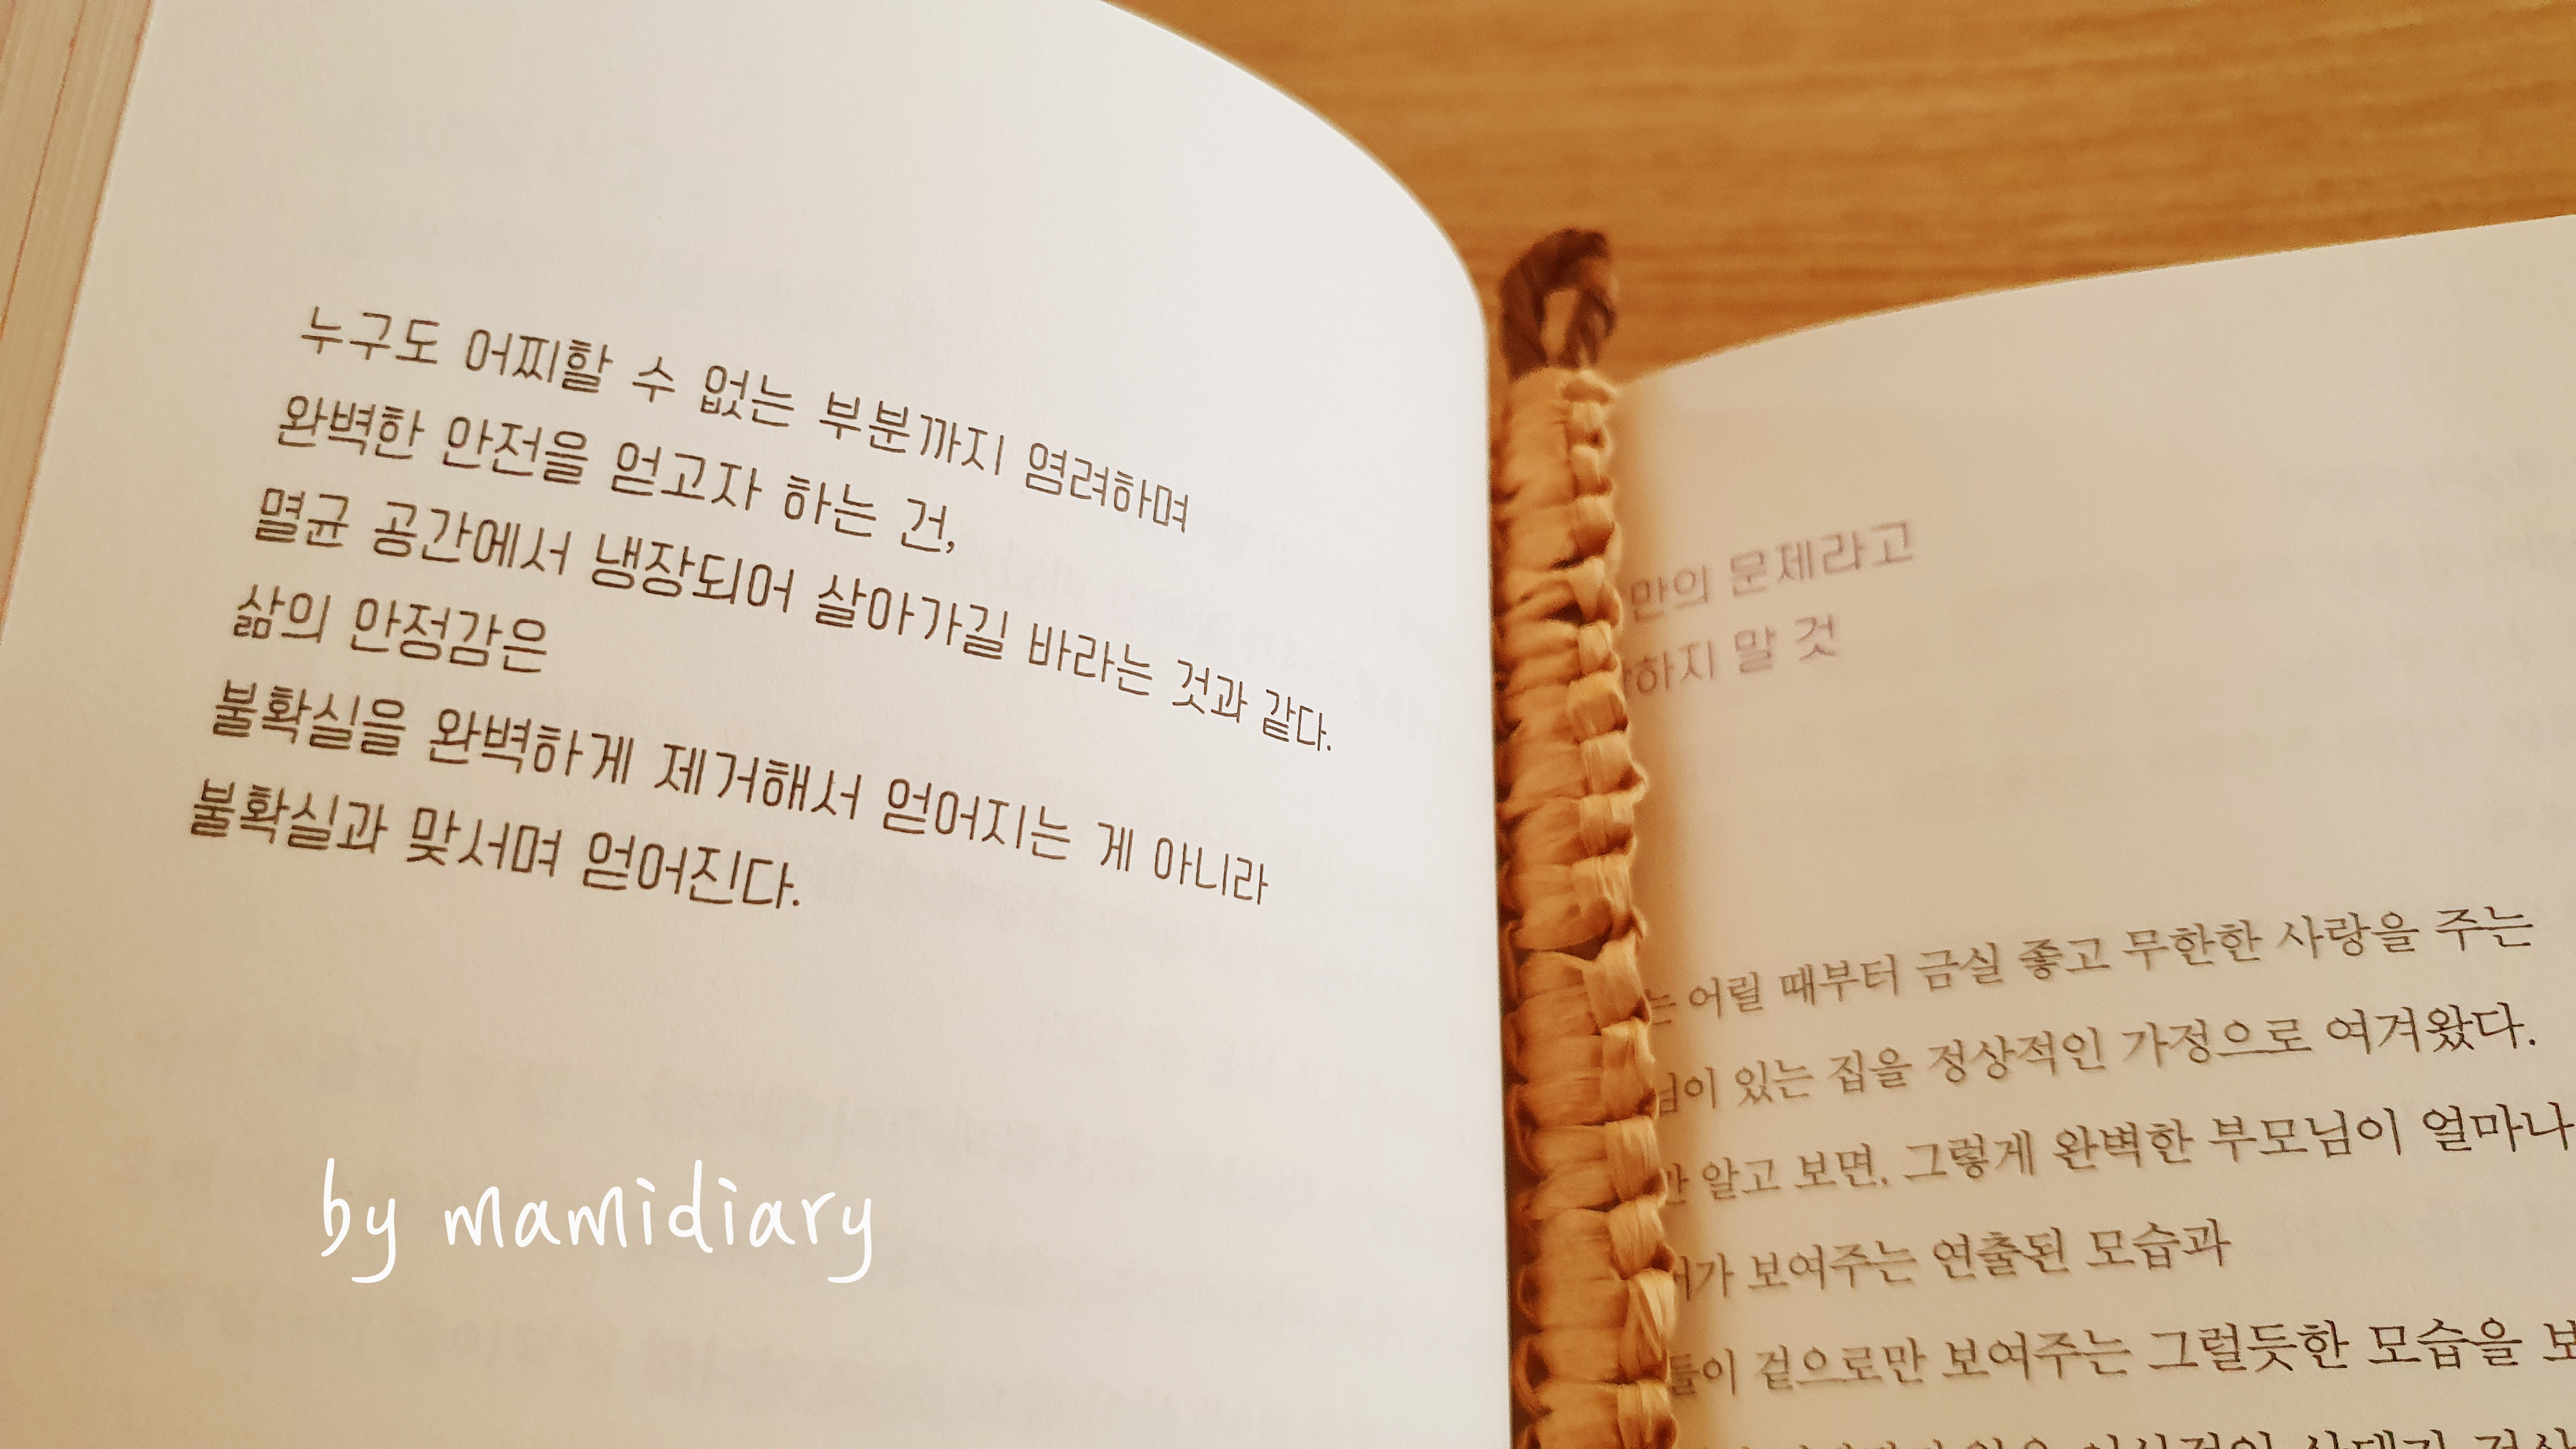 누구도 어찌할 수 없는 부분까지 염려하며
완벽한 안전을 얻고자 하는 건,
멸균 공간에서 냉장되어 살아가길 바라는 것과 같다.
삶의 안정감은
불확실을 완벽하게 제거해서 얻어지는 게 아니라
불확실과 맞서며 얻어진다.
by mamidiary
만의 문제라고
하지 말 것
는 어릴 때부터 금실 좋고 무한한 사랑을 주는
님이 있는 집을 정상적인 가정으로 여겨왔다.
알고 보면, 그렇게 완벽한 부모님이 얼마나
가 보여주는 연출된 모습과
들이 겉으로만 보여주는 그럴듯한 모습을